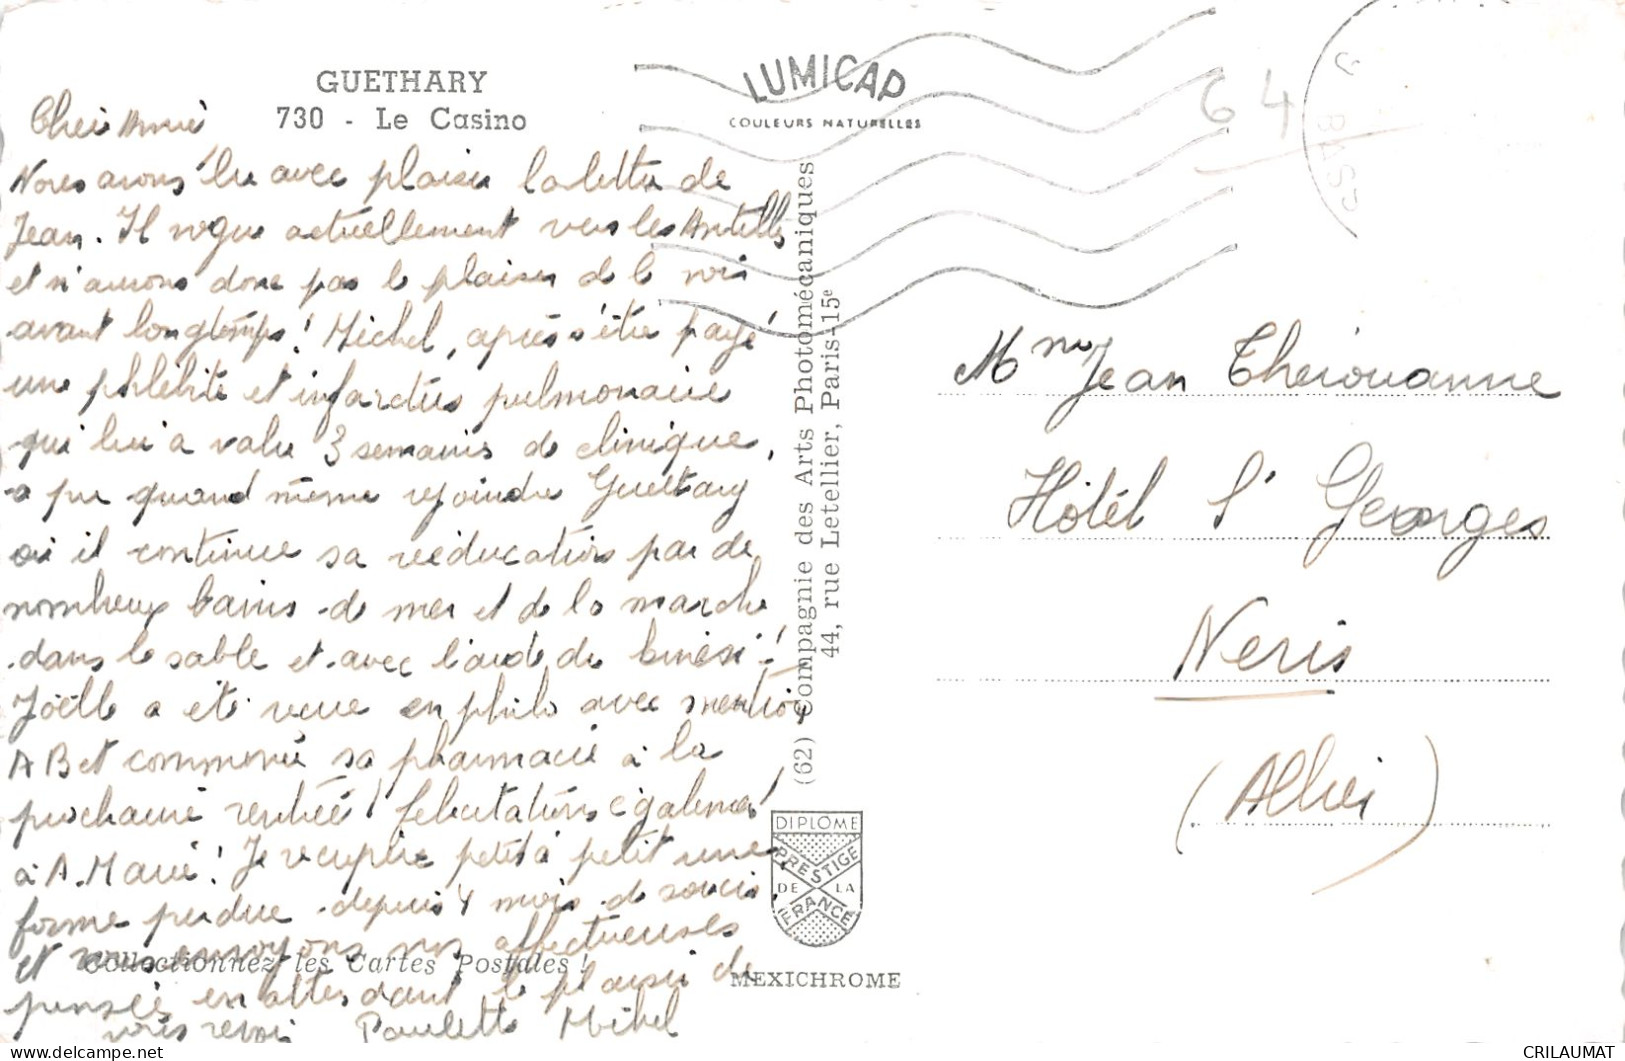 GUETHARY
730 - Le Casino
LUMICAP
COULEURS NATURELLES
64
BASS
Nous avons lu avec plaisir la lettre de
Jean. Il vogue actuellement vers les Antilles
et n'aurons donc pas le plaisir de le voir
avant longtemps! Michel, après s'être payé
une phlébite et infarctus pulmonaire
qui lui a valu 3 semaines de clinique,
a pu quand même rejoindre Guethary
où il continue sa rééducation par de
nombreux bains de mer et de la marche
dans le sable et avec l'aide du
Joëlle a été reçue en philo avec mention
AB et commence sa pharmacie à la
prochaine rentrée! félicitations également
à A. Marie! Je récupère petit à petit une
forme perdue depuis 4 mois de soucis
et vous envoyons nos affectueuses
pensées en attendant le plaisir de
vous revoir Paulette Michel
Collectionnez les Cartes Postales!
(62) Compagnie des Arts Photomécaniques
44, rue Letellier, Paris-15e
DIPLOME
PRESTIGE
DE LA
FRANCE
MEXICHROME
Mme Jean Therouanne
Hôtel St Georges
Neris
(Allier)
CRILAUMAT